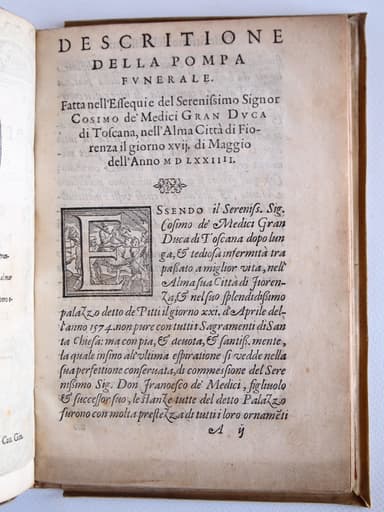 DESCRITIONE
DELLA POMPA
FVNERALE.
Fatta nell'Essequie del Serenissimo Signor
COSIMO de' Medici GRAN DVCA
di Toscana, nell'Alma Città di Fio-
renza il giorno xvij. di Maggio
dell'Anno MDLXXIIII.
ESSENDO il Sereniss. Sig.
Cosimo de' Medici Gran
Duca di Toscana dopo lun
ga, & tediosa infermità tra
passato a miglior vita, nell'
Alma sua Città di Fioren-
za, & nel suo splendidissimo
palazzo detto de Pitti il giorno xxi. di Aprile del-
l'anno 1574. non pure con tutti i Sagramenti di San
ta Chiesa: ma con pia, & deuota, & santiss. mente,
la quale insino all'vltima espiratione si vedde nella
sua perfettione conseruata, di commessione del Sere
nissimo Sig. Don Francesco de' Medici, figliuolo
& successor suo, le stanze tutte del detto Palazzo
furono con molta prestezza di tutti i loro ornamẽti
A ij